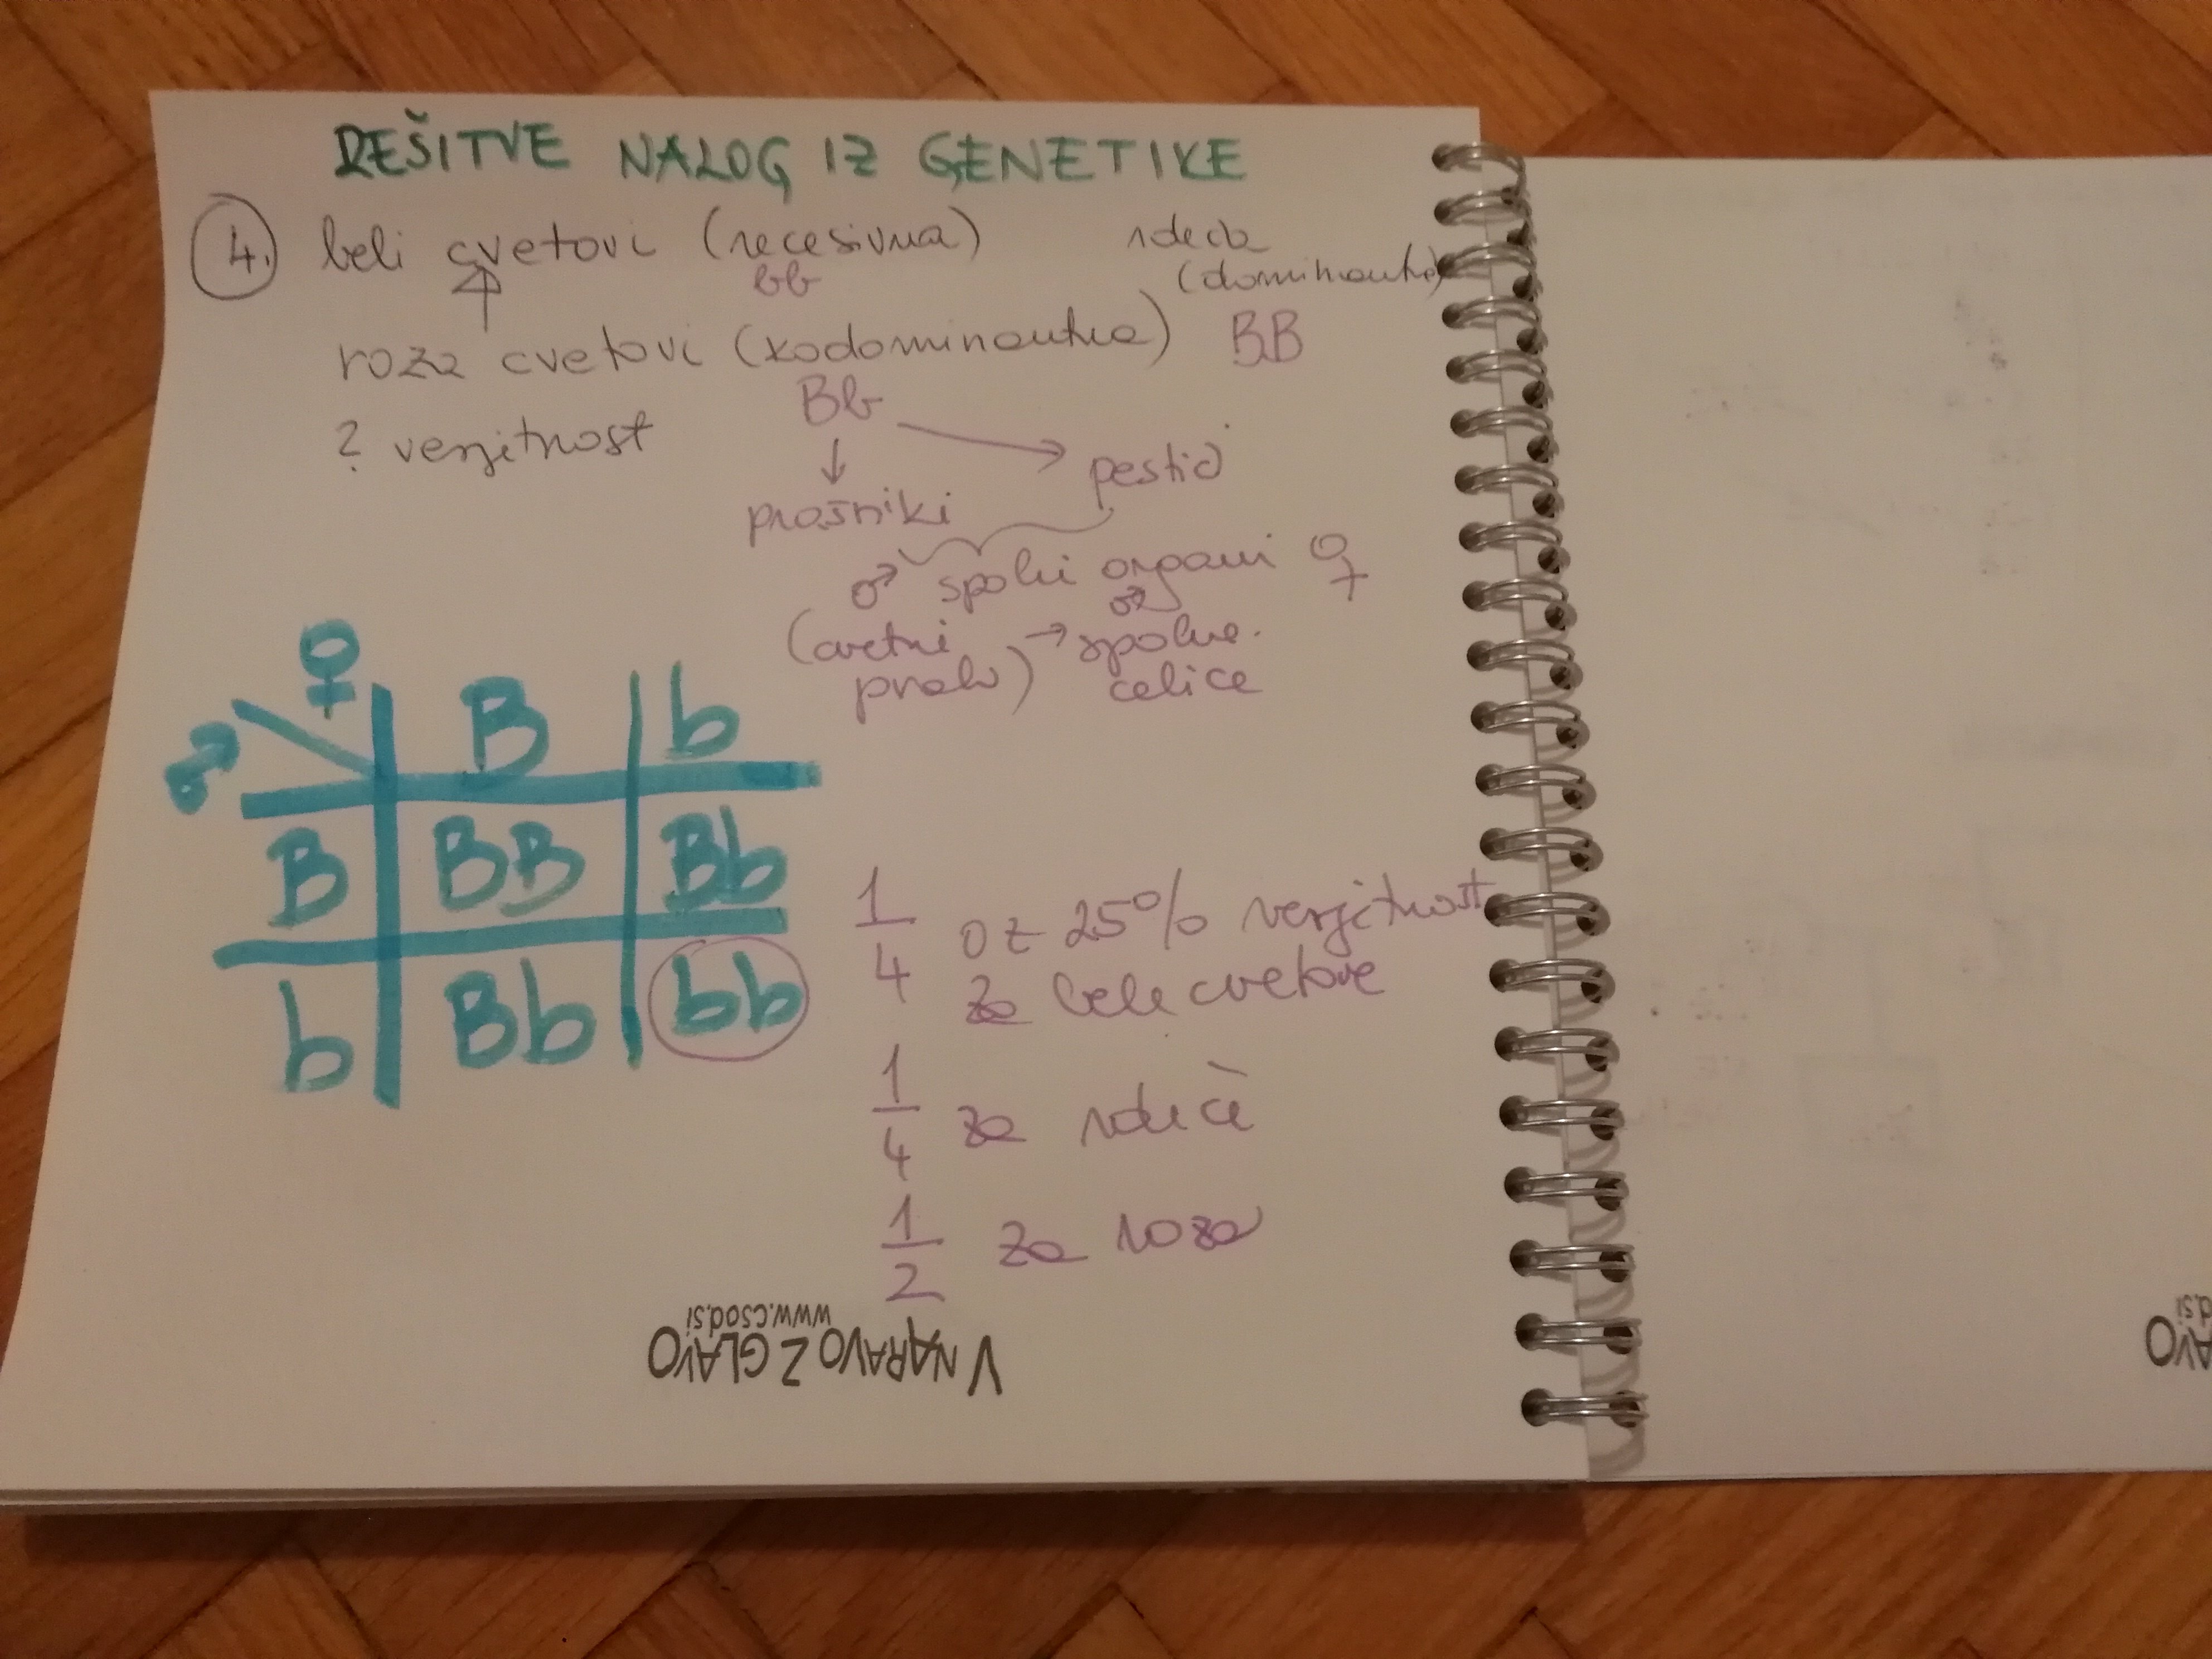 REŠITVE NALOG IZ GENETIKE
4. beli cvetovi (recesivna) rdeča
bb (dominantna)
roza cvetovi (kodominantna) BB
Bb
? verjetnost
pestič
prašniki
♂ spolni organi ♀
♂
(cvetni → spolne
prah) celice
♀ B b
♂
B BB Bb
b Bb bb
1/4 oz 25% verjetnost
za bele cvetove
1/4 za rdeče
1/2 za roza
V NARAVO Z GLAVO
www.csod.si
AVO
d.si